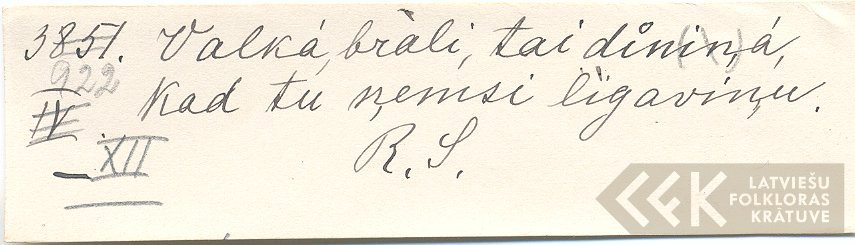 3851. Valká, brāli, tai dīniņá,
922 kad tu ņemsi līgaviņu.
IV
XII R. S.
LATVIEŠU
FOLKLORAS
KRĀTUVE